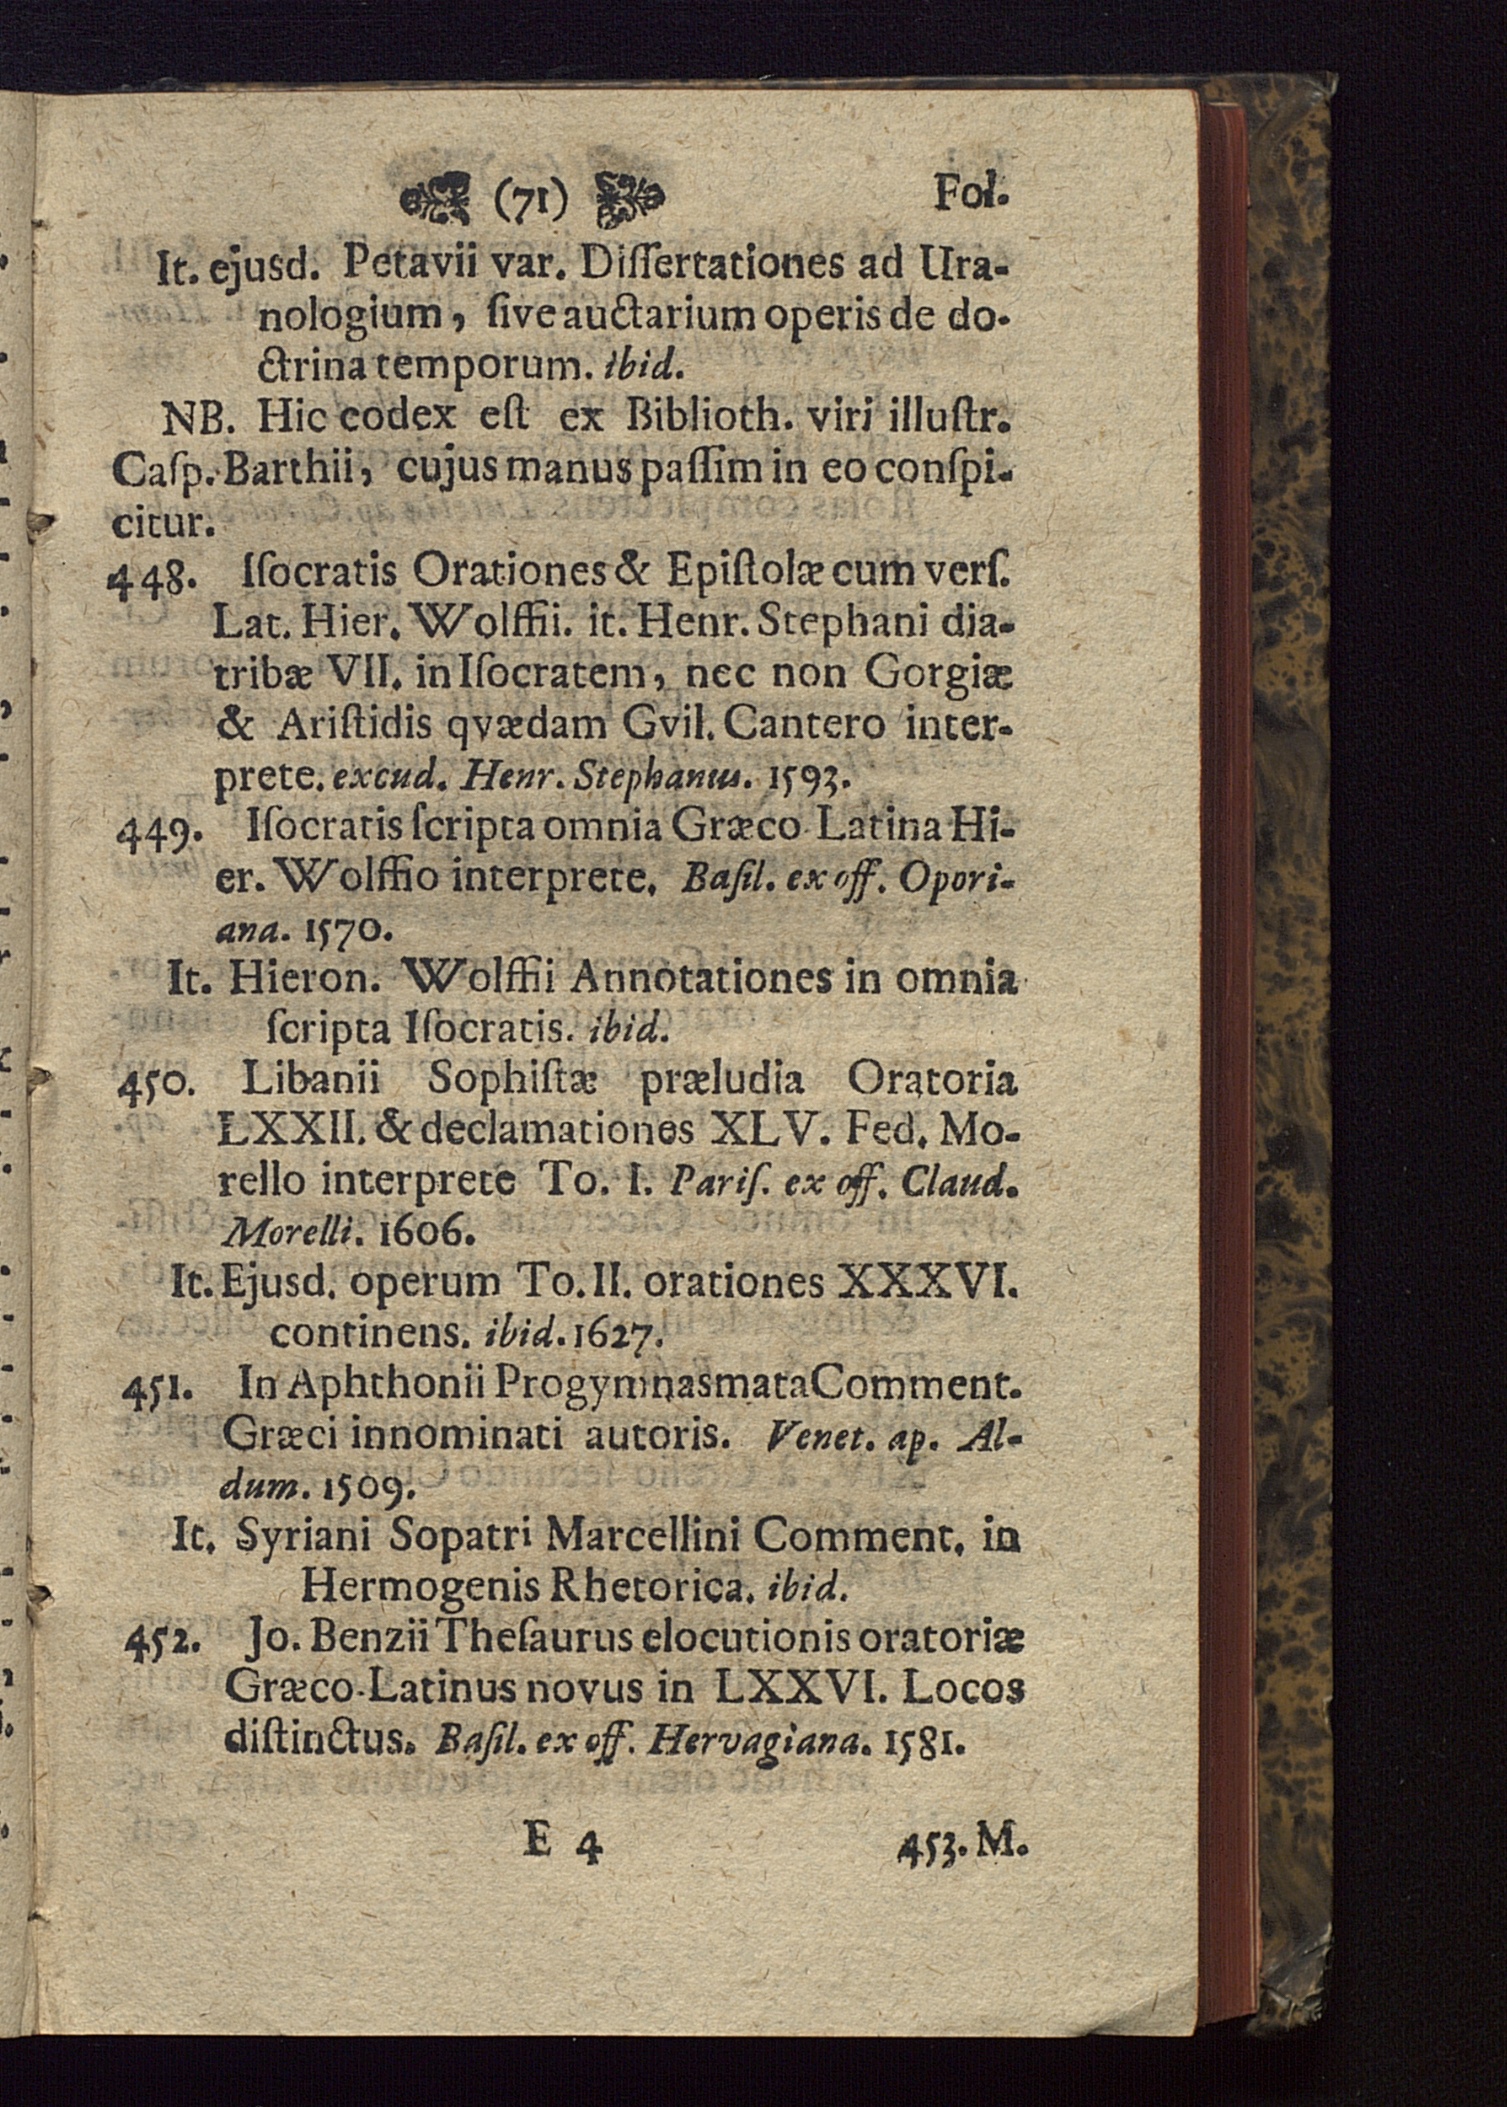 (71) Fol.
It. ejusd. Petavii var. Diſſertationes ad Ura-
nologium, ſive auctarium operis de do-
ctrina temporum. ibid.
NB. Hic codex eſt ex Biblioth. viri illuſtr.
Caſp. Barthii, cujus manus paſſim in eo conſpi-
citur.
448. Iſocratis Orationes & Epiſtolæ cum verſ.
Lat. Hier. Wolffii. it. Henr. Stephani dia-
tribæ VII. in Iſocratem, nec non Gorgiæ
& Ariſtidis qvædam Gvil. Cantero inter-
prete. excud. Henr. Stephanus. 1593.
449. Iſocratis ſcripta omnia Græco-Latina Hi-
er. Wolffio interprete. Baſil. ex off. Opori-
ana. 1570.
It. Hieron. Wolffii Annotationes in omnia
ſcripta Iſocratis. ibid.
450. Libanii Sophiſtæ præludia Oratoria
LXXII. & declamationes XLV. Fed. Mo-
rello interprete To. I. Pariſ. ex off. Claud.
Morelli. 1606.
It. Ejusd. operum To. II. orationes XXXVI.
continens. ibid. 1627.
451. In Aphthonii Progymnasmata Comment.
Græci innominati autoris. Venet. ap. Al-
dum. 1509.
It. Syriani Sopatri Marcellini Comment. in
Hermogenis Rhetorica. ibid.
452. Jo. Benzii Theſaurus elocutionis oratoriæ
Græco-Latinus novus in LXXVI. Locos
diſtinctus. Baſil. ex off. Hervagiana. 1581.
E 4 453. M.